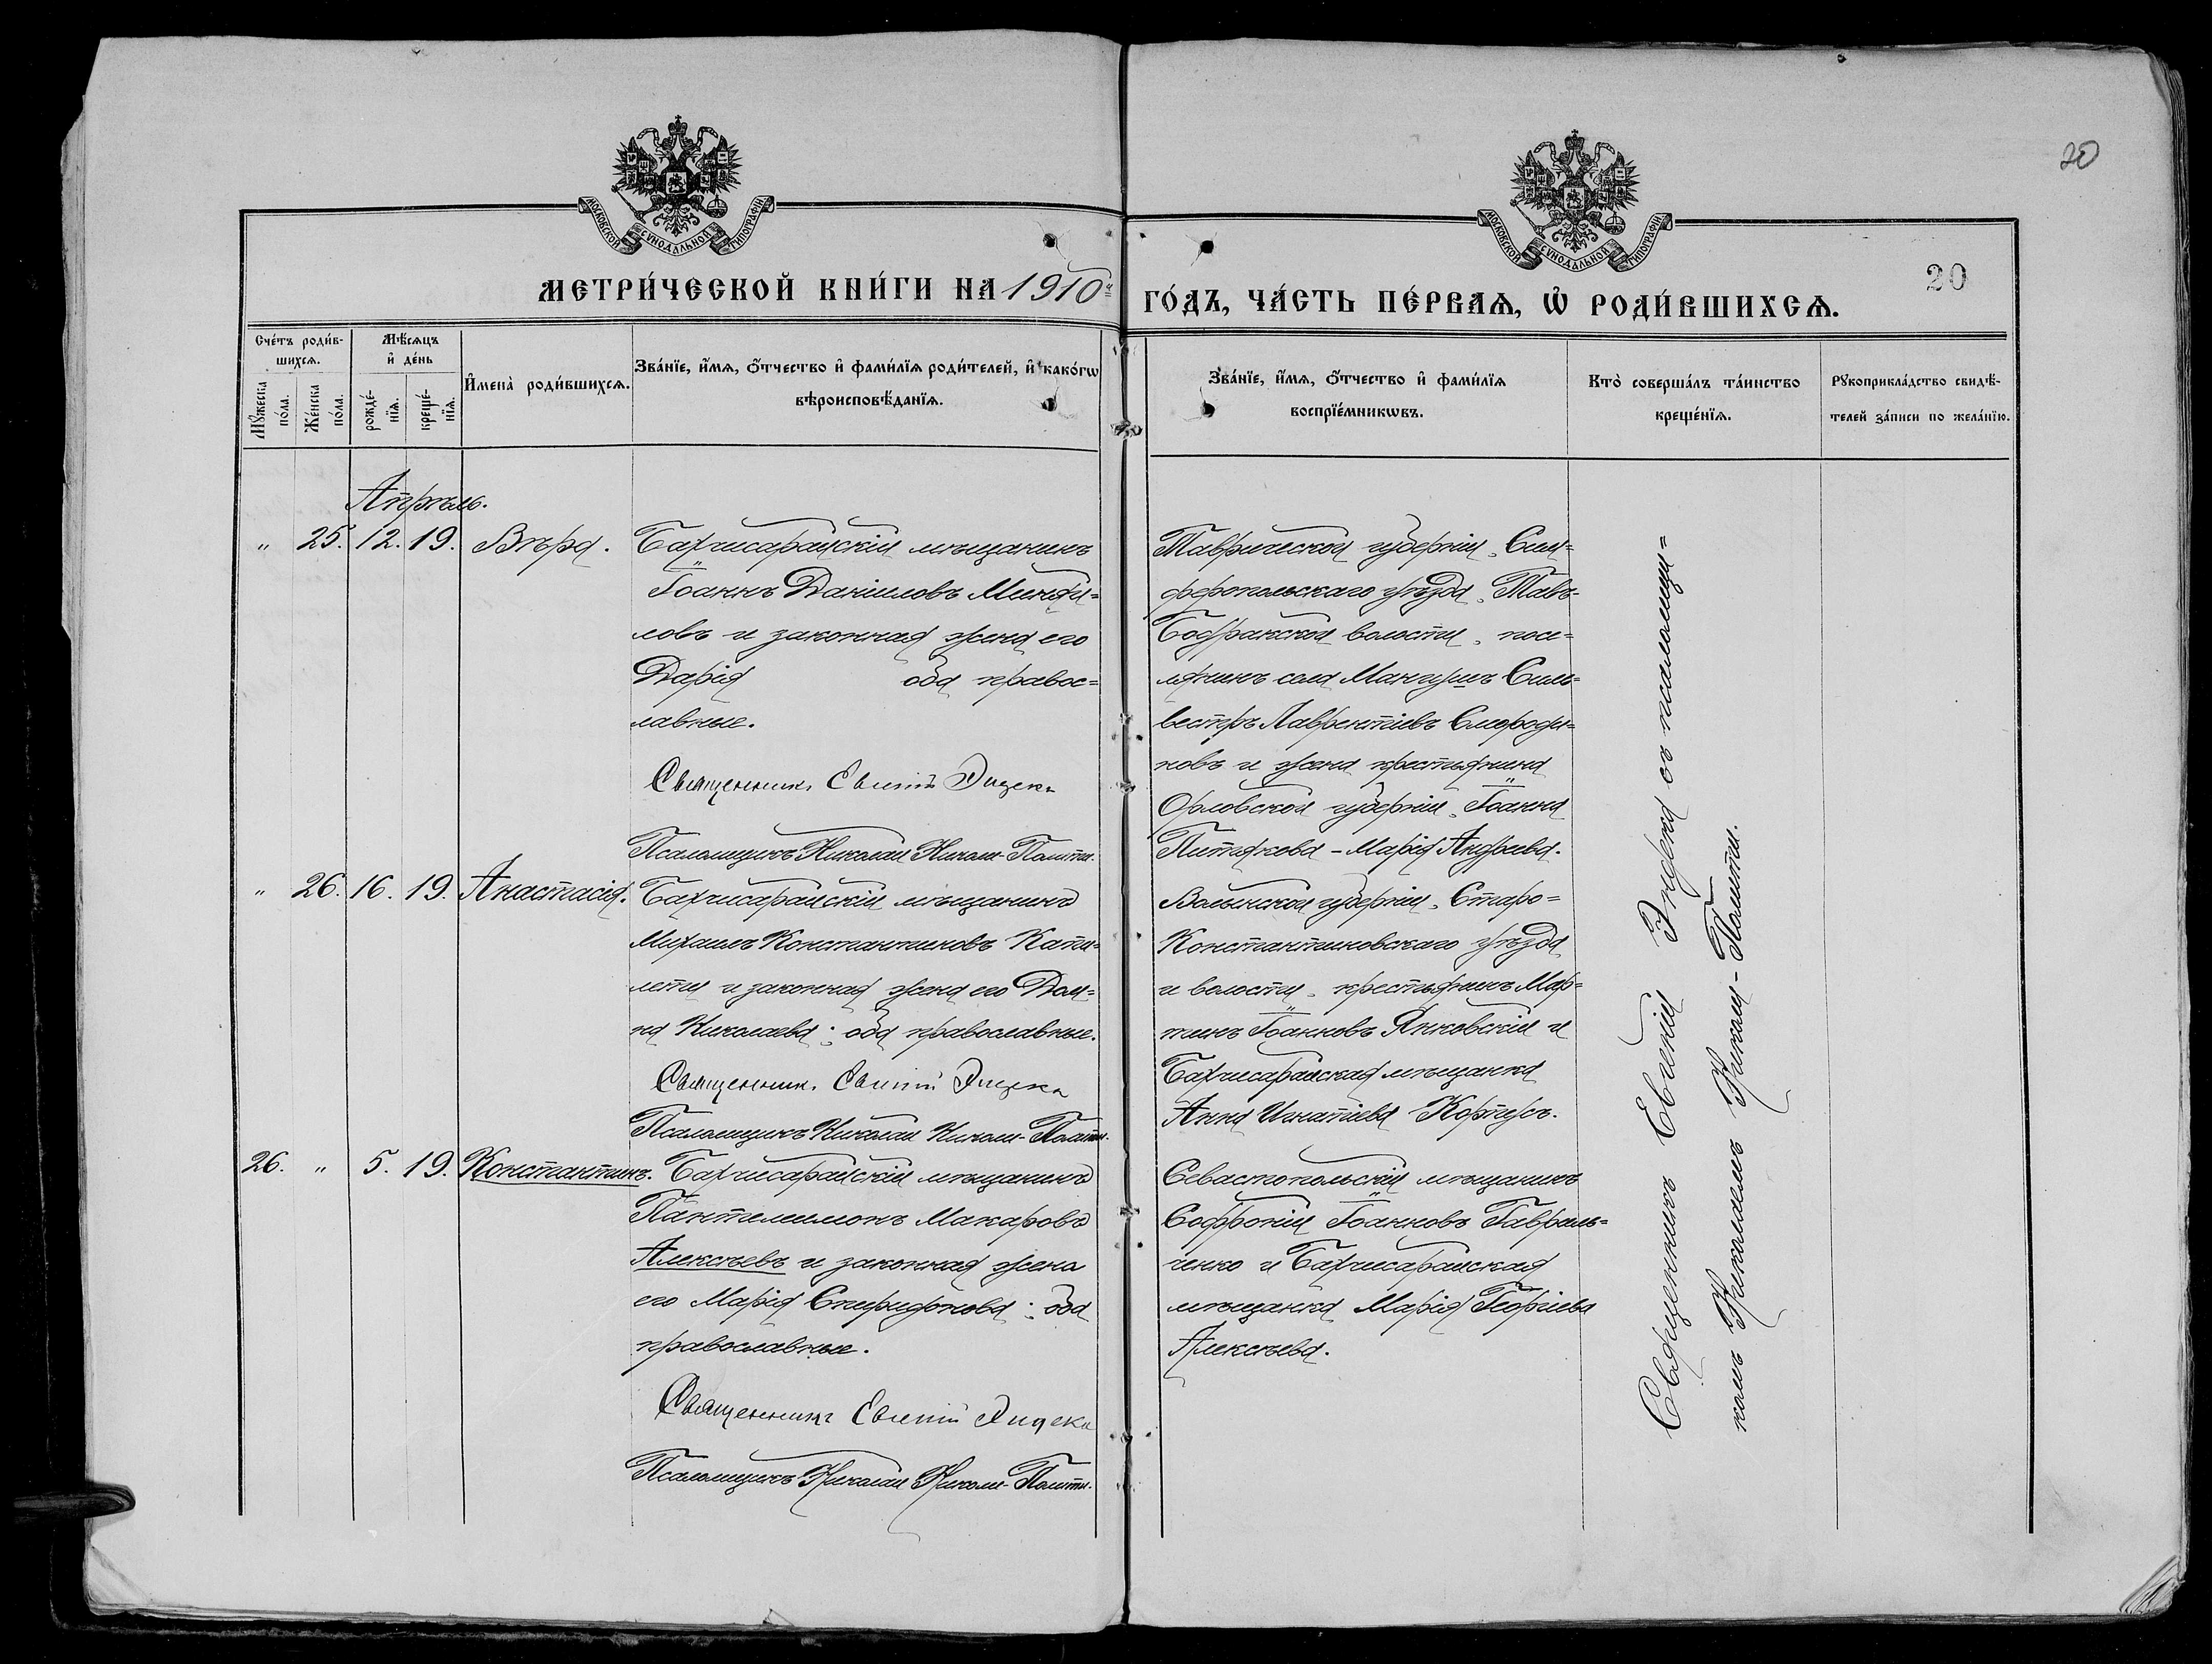 20
МОСКОВСКОЙ СѴНОДАЛЬНОЙ ТИПОГРАФІИ
МОСКОВСКОЙ СѴНОДАЛЬНОЙ ТИПОГРАФІИ
20
МЕТРИ́ЧЕСКОЙ КНИ́ГИ НА 1910й
ГО́ДЪ, ЧА́СТЬ ПЕ́РВАѦ, Ѽ РОДИ́ВШИХСѦ.
Сче́тъ роди́в-
шихсѧ.
Мꙋжеска
по́ла.
Же́нска
по́ла.
Мѣ́сѧцъ
и҆ де́нь
рожде́-
нїѧ.
креще́-
нїѧ.
И҆мена̀ роди́вшихсѧ.
Зва́нїе, и҆́мѧ, ѻ҆́тчество и҆ фами́лїѧ роди́телей, и҆ како́гѡ
вѣроисповѣ́данїѧ.
Зва́нїе, и҆́мѧ, ѻ҆́тчество и҆ фами́лїѧ
воспрїе́мникѡвъ.
Кто̀ соверша́лъ та́инство
креще́нїѧ.
Рꙋкоприкла́дство свидѣ́-
телей за́писи по жела́нїю.
Апрѣль.
" 25. 12. 19. Вѣра.
Бахчисарайскій мѣщанинъ
Іоаннъ Даніиловъ
ловъ и законная жена его
Дарія оба правос=
лавные.
Священникъ Евгеній Эндека
Псаломщикъ Николай Николи-Политы.
Таврической губерніи, Сим=
феропольскаго уѣзда, Тавъ-
Бодракской волости, посе=
лянинъ села Мангушъ Силь=
вестръ Лаврентіевъ Смороди=
новъ и жена крестьянина
Орловской губерніи, Іоанна
Питякова - Марія Андреева.
" 26. 16. 19. Анастасія.
Бахчисарайскій мѣщанинъ
Михаилъ Константиновъ Капи=
лети и законная жена его Дом=
на Николаева; оба православные.
Священникъ Евгеній Эндека
Псаломщикъ Николай Николи-Политы.
Волынской губерніи, Старо=
Константиновскаго уѣзда
и волости, крестьянинъ Мар=
тинъ Іоанновъ Янковскій и
Бахчисарайская мѣщанка
Анна Игнатіева Корпусъ.
26. " 5. 19. Константинъ.
Бахчисарайскій мѣщанинъ
Пантелеимонъ Макаровъ
Алексѣевъ и законная жена
его Марія Спиридонова; оба
православные.
Священникъ Евгеній Эндека
Псаломщикъ Николай Николи-Политы.
Севастопольскій мѣщанинъ
Софроній Іоанновъ Гавриль=
ченко и Бахчисарайская
мѣщанка Марія Георгіева
Алексѣева.
Священникъ Евгеній Эндека съ псаломщи=
комъ Николаемъ Николи-Политы.